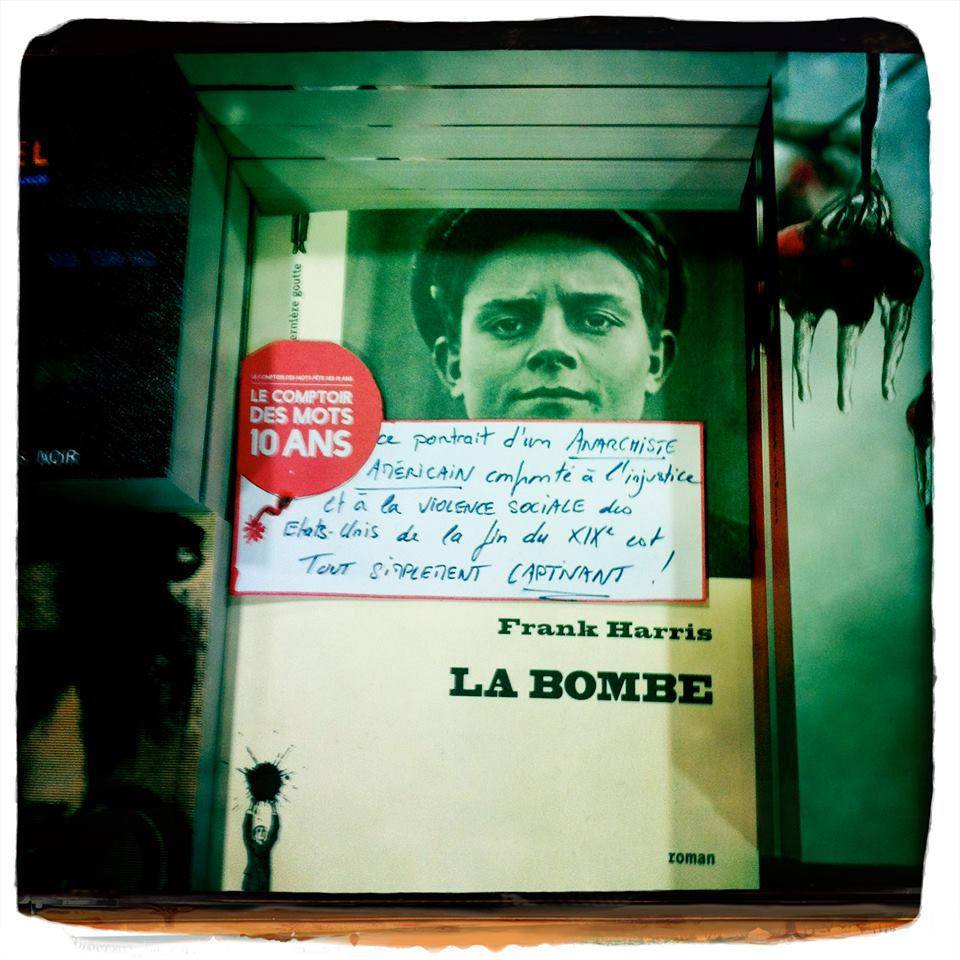 EL
ernière goutte
LE COMPTOIR DES MOTS FÊTE SES 10 ANS
LE COMPTOIR
DES MOTS
10 ANS
ce portrait d'un ANARCHISTE
AMÉRICAIN confronté à l'injustice
et à la VIOLENCE SOCIALE des
Etats-Unis de la fin du XIXe est
TOUT SIMPLEMENT CAPTIVANT !
NOIR
Frank Harris
LA BOMBE
roman